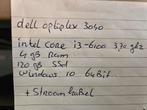 dell optiplex 3040
intel core i3-6100 3,70 ghz
4 gb Ram
120 gb SSd
windows 10 64Bit
+ Stroomkabel